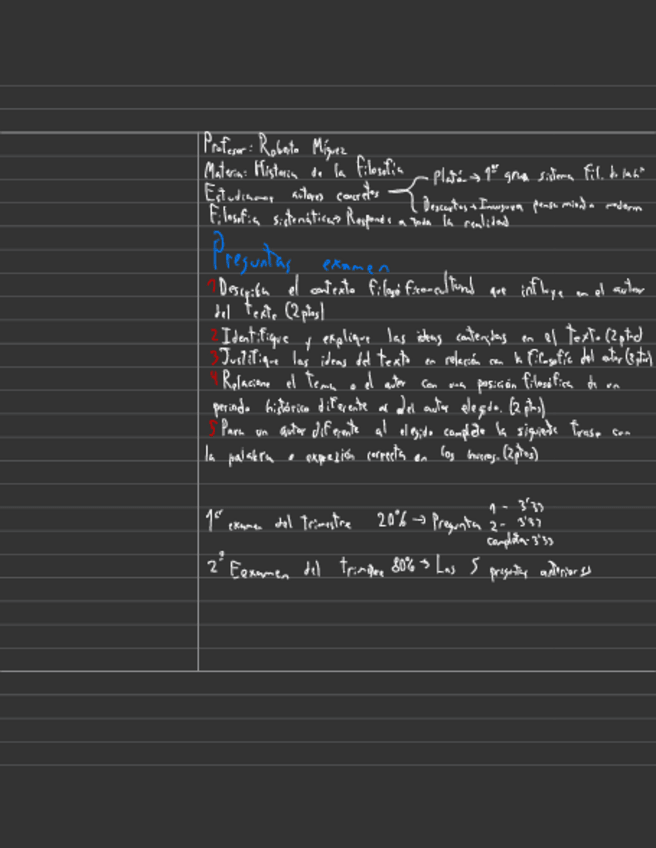 Profesor: Roberto Míguez
Materia: Historia de la filosofía
Estudiamos autores concretos
Platón → 1er gran sistema fil. de la hª
Descartes → Inaugura pensamiento moderno
Filosofía sistemática → Responde a toda la realidad
Preguntas examen
1 Describa el contexto filosófico-cultural que influye en el autor
del texto (2ptos)
2 Identifique y explique las ideas contenidas en el texto. (2ptos)
3 Justifique las ideas del texto en relación con la filosofía del autor (2ptos)
4 Relacione el tema o el autor con una posición filosófica de un
periodo histórico diferente al del autor elegido. (2 ptos)
5 Para un autor diferente al elegido complete la siguiente frase con
la palabra o expresión correcta en los huecos. (2ptos)
1er examen del trimestre 20% → Pregunta
1 - 3'33
2 - 3'33
completa - 3'33
2º Eexamen del 80% → Las 5 preguntas anteriores